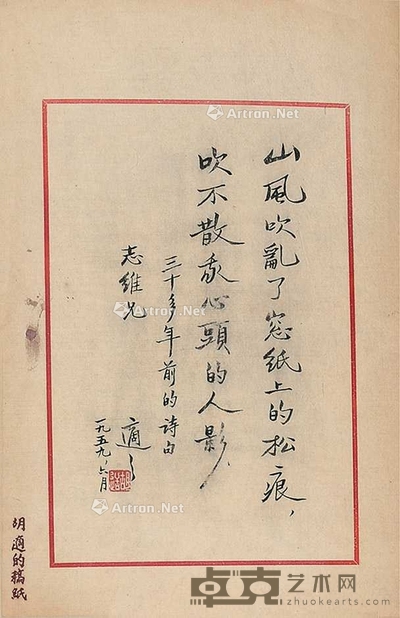 山風吹亂了窓紙上的松痕，
吹不散我心頭的人影。
三十多年前的詩句
志維兄
適之
一九五九、六月
胡適的稿紙
Artron.Net
Artron.Net
Artron.Net
Artron.Net
卓克艺术网
zhuokearts.com